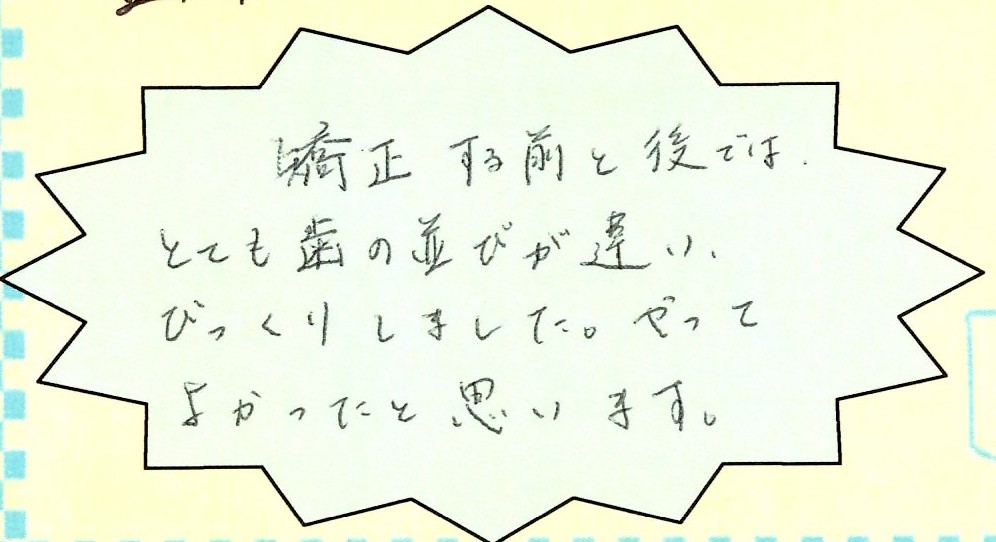 矯正する前と後では、
とても歯の並びが違い、
びっくりしました。やって
よかったと思います。